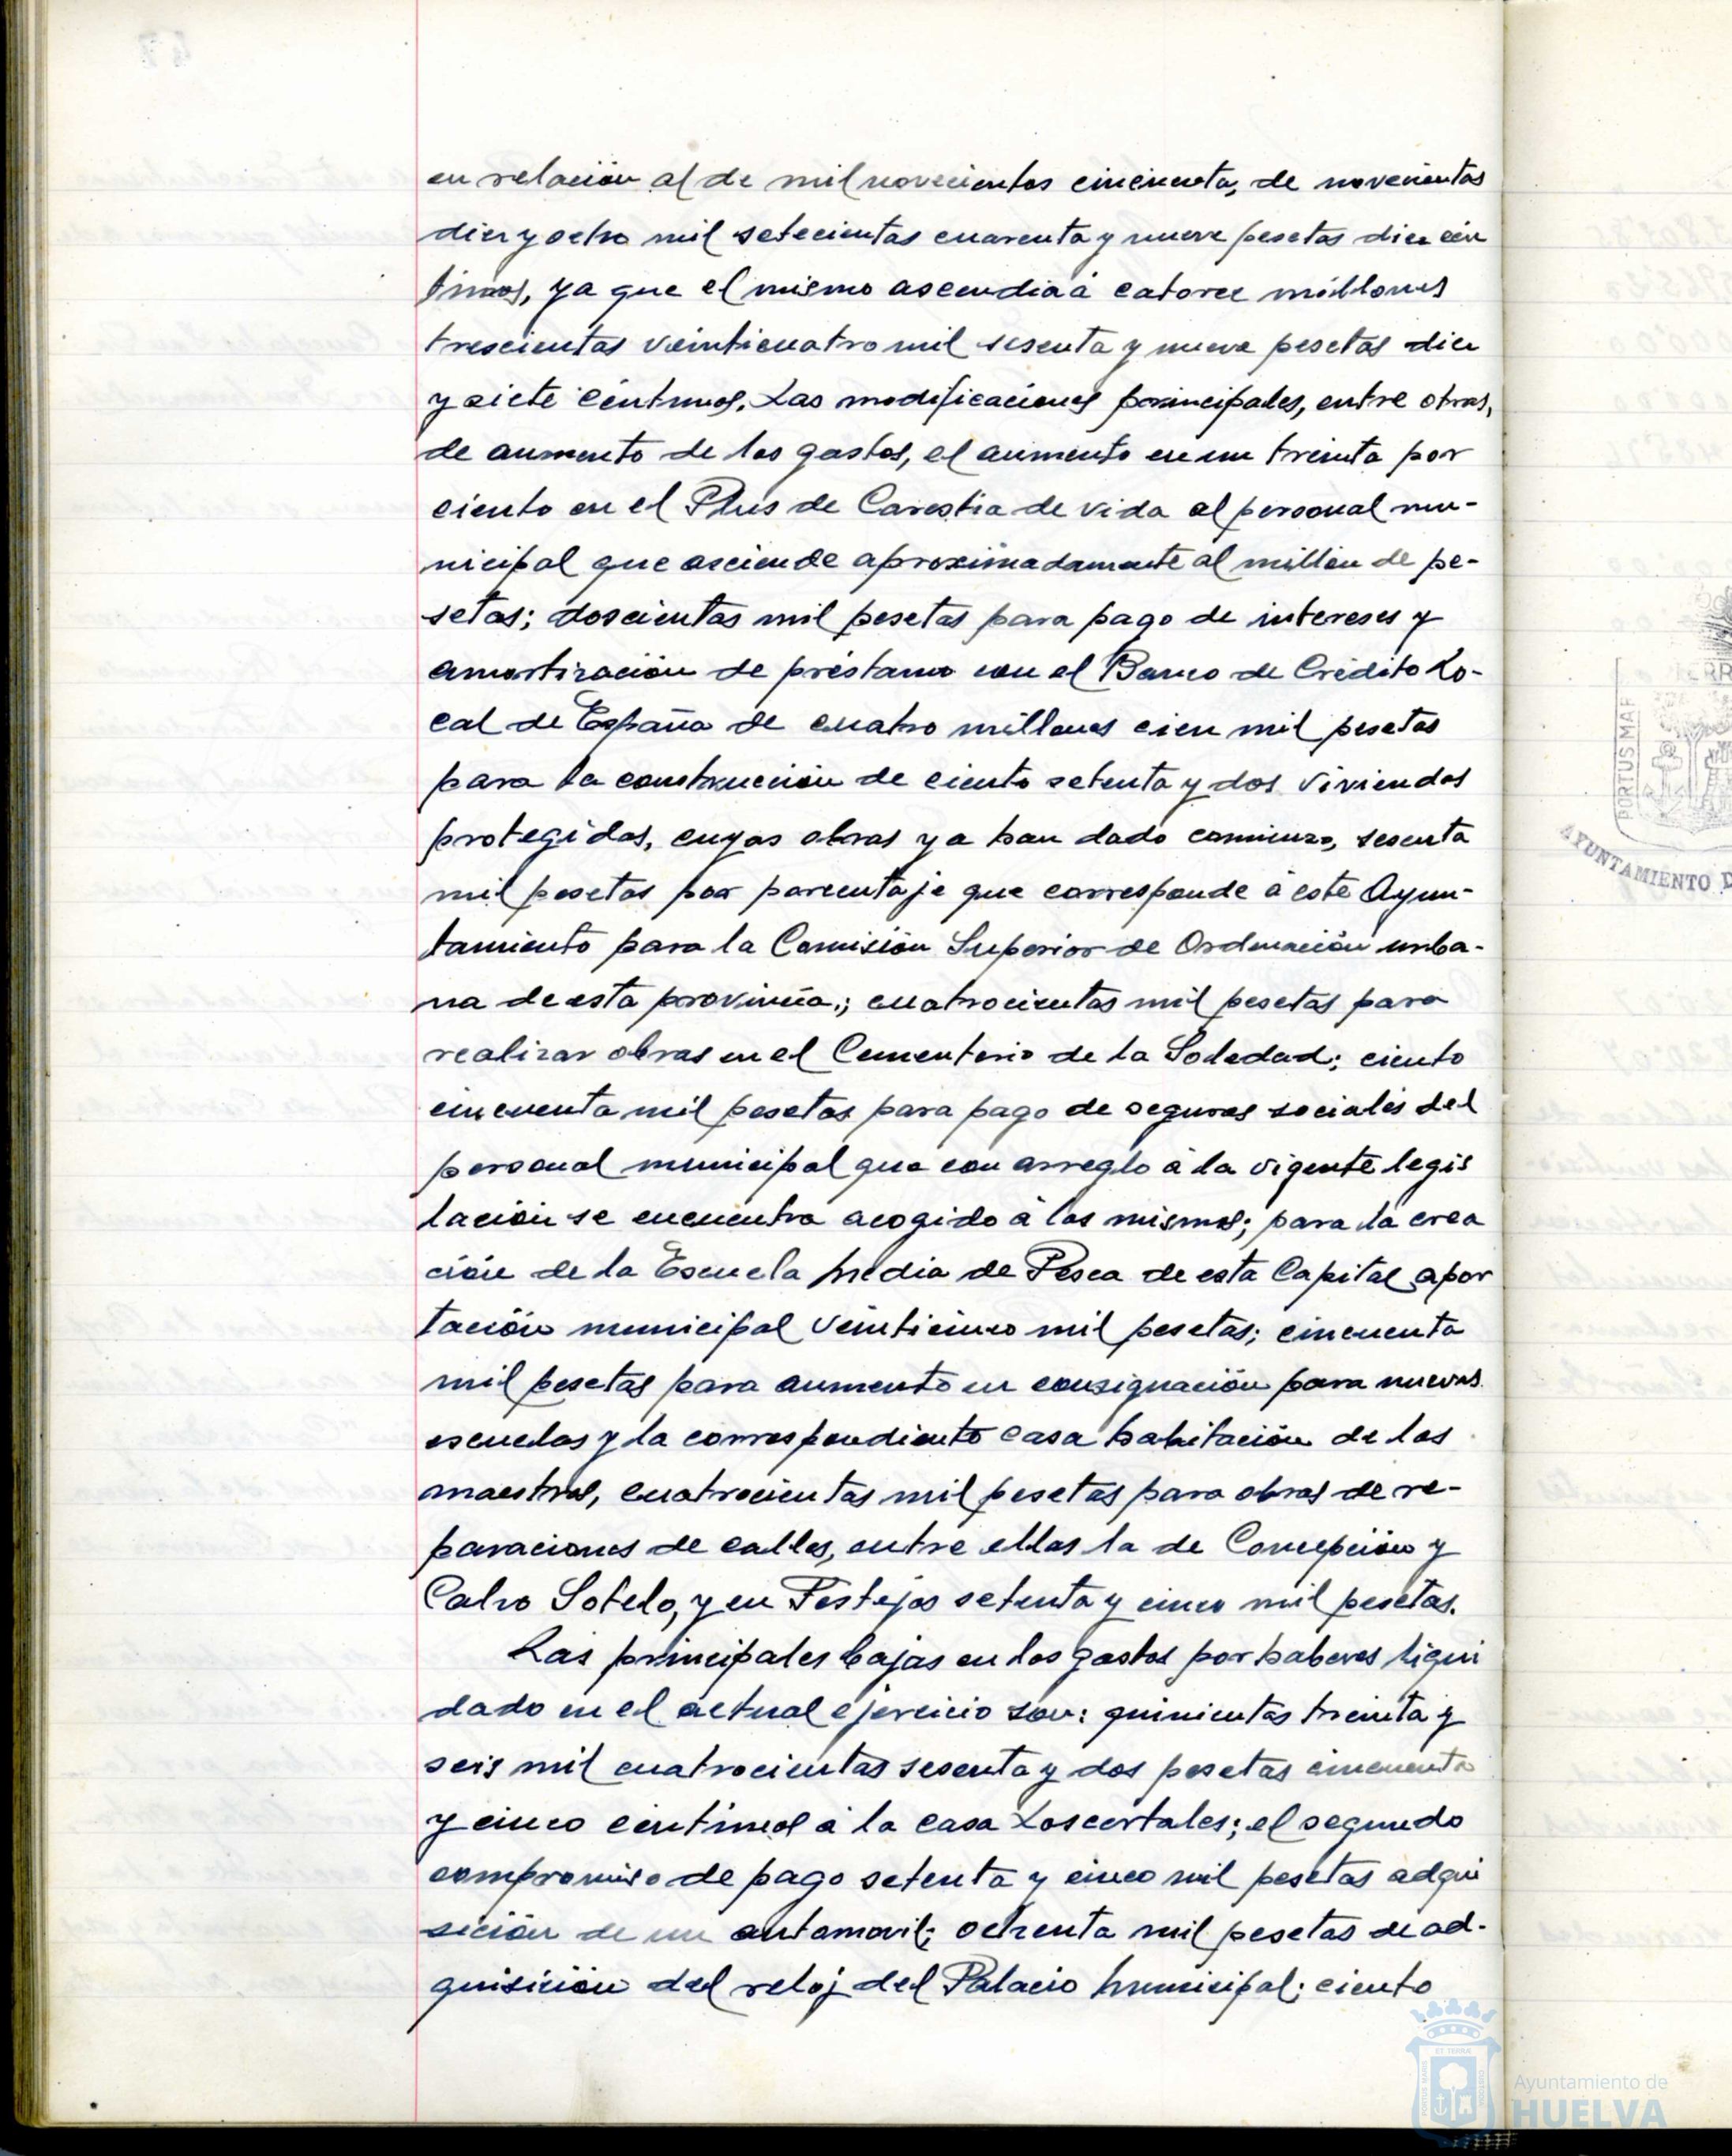 en relación al de mil novecientos cincuenta, de novecientas
diez y ocho mil setecientas cuarenta y nueve pesetas diez cén
timos, ya que el mismo ascendia á catorce millones
trescientas veinticuatro mil sesenta y nueve pesetas diez
y siete céntimos. Las modificaciones principales, entre otras,
de aumento de los gastos, el aumento en un treinta por
ciento en el Plus de Carestia de vida al personal mu-
nicipal que asciende aproximadamente al millón de pe-
setas; doscientas mil pesetas para pago de intereses y
amortización de préstamo con el Banco de Crédito Lo-
cal de España de cuatro millones cien mil pesetas
para la construcción de ciento setenta y dos viviendas
protegidas, cuyas obras ya han dado comienzo, sesenta
mil pesetas por porcentaje que corresponde á este Ayun-
tamiento para la Comisión Superior de Ordenación urba-
na de esta provincia; cuatrocientas mil pesetas para
realizar obras en el Cementerio de la Soledad; ciento
cincuenta mil pesetas para pago de seguros sociales del
personal municipal que con arreglo á la vigente legis
lación se encuentra acogido á los mismos; para la crea
ción de la Escuela Media de Pesca de esta Capital apor
tación municipal veinticinco mil pesetas; cincuenta
mil pesetas para aumento en consignación para nuevas
escuelas y la correspondiente casa habitación de los
maestros, cuatrocientas mil pesetas para obras de re-
paraciones de calles, entre ellas la de Concepción y
Calvo Sotelo, y en Festejos setenta y cinco mil pesetas.
Las principales bajas en los gastos por haberes liqui
dado en el actual ejercicio son: quinientas treinta y
seis mil cuatrocientas sesenta y dos pesetas cincuenta
y cinco céntimos á la casa Loscertales; el segundo
compromiso de pago setenta y cinco mil pesetas adqui
sición de un automovil; ochenta mil pesetas de ad-
quisición del reloj del Palacio Municipal; ciento
PORTUS MAR
AYUNTAMIENTO D
Ayuntamiento de
HUELVA